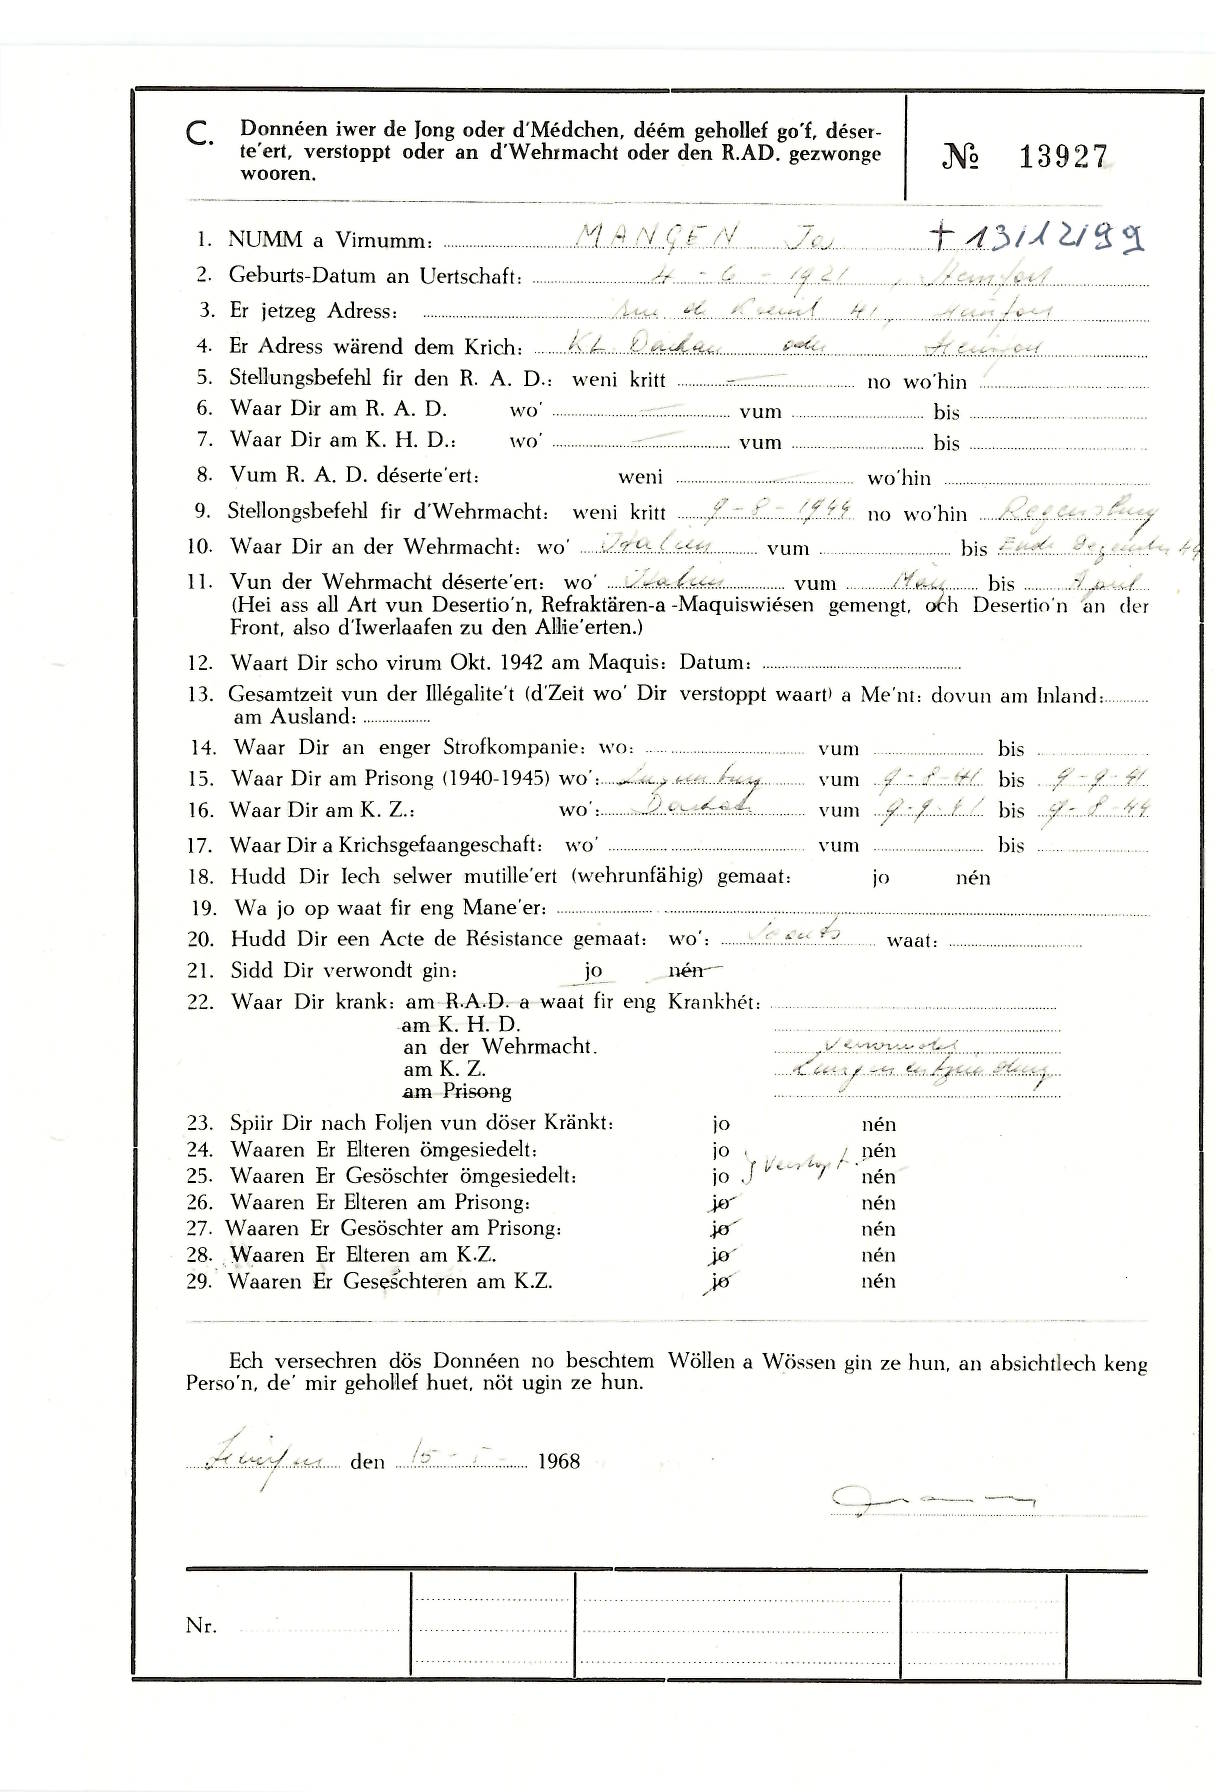 C. Donnéen iwer de Jong oder d'Médchen, déém gehollef go'f, déser-
te'ert, verstoppt oder an d'Wehrmacht oder den R.AD. gezwonge
wooren.
№ 13927
1. NUMM a Virnumm: MANGEN Jos † 13/12/99
2. Geburts-Datum an Uertschaft: 4 - 6 - 1921, Steinfort
3. Er jetzeg Adresse: rue de Kreuzt 41, Steinfort
4. Er Adress wärend dem Krich: KL Dachau oder Steinfort
5. Stellungsbefehl fir den R. A. D.: weni kritt — no wo'hin
6. Waar Dir am R. A. D. wo' — vum bis
7. Waar Dir am K. H. D.: wo' — vum bis
8. Vum R. A. D. déserte'ert: weni — wo'hin
9. Stellongsbefehl fir d'Wehrmacht: weni kritt 9-8-1944 no wo'hin Regensburg
10. Waar Dir an der Wehrmacht: wo' Italien vum bis Ende Dezember 44
11. Vun der Wehrmacht déserte'ert: wo' Italien vum März bis April
(Hei ass all Art vun Desertio'n, Refraktären-a -Maquiswiésen gemengt, och Desertio'n an der
Front, also d'Iwerlaafen zu den Allie'erten.)
12. Waart Dir scho virum Okt. 1942 am Maquis: Datum:
13. Gesamtzeit vun der Illégalite't (d'Zeit wo' Dir verstoppt waart) a Me'nt: dovun am Inland:
am Ausland:
14. Waar Dir an enger Strofkompanie: wo: vum bis
15. Waar Dir am Prisong (1940-1945) wo': Luxemburg vum 9-8-41 bis 9-9-41
16. Waar Dir am K. Z.: wo': Dachau vum 9-9-41 bis 9-8-44
17. Waar Dir a Krichsgefaangeschaft: wo' vum bis
18. Hudd Dir Iech selwer mutille'ert (wehrunfähig) gemaat: jo nén
19. Wa jo op waat fir eng Mane'er:
20. Hudd Dir een Acte de Résistance gemaat: wo': Scouts waat:
21. Sidd Dir verwondt gin: jo nén
22. Waar Dir krank: am R.A.D. a waat fir eng Krankhét:
am K. H. D.
an der Wehrmacht. verwundet
am K. Z. Lungenentzündung
am Prisong
23. Spiir Dir nach Foljen vun döser Kränkt: jo nén
24. Waaren Er Elteren ömgesiedelt: jo nén
25. Waaren Er Gesöschter ömgesiedelt: jo verstopt nén
26. Waaren Er Elteren am Prisong: jo nén
27. Waaren Er Gesöschter am Prisong: jo nén
28. Waaren Er Elteren am K.Z. jo nén
29. Waaren Er Geseschteren am K.Z. jo nén
Ech versechren dös Donnéen no beschtem Wöllen a Wössen gin ze hun, an absichtlech keng
Perso'n, de' mir gehollef huet, nöt ugin ze hun.
Steinfort den 15-5- 1968
Nr.